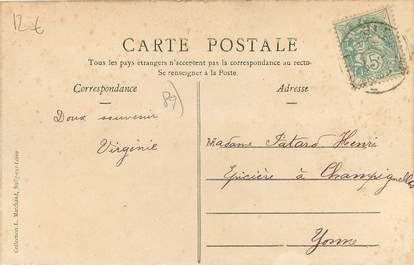 12€
CARTE POSTALE
Tous les pays étrangers n'acceptent pas la correspondance au recto-
Se renseigner à la Poste.
Correspondance
Adresse
89
Doux souvenir
Virginie
Madame Patard Henri
Epicière à Champignelles
Yonne
Collection L. Marchand, Sully-sur-Loire
5